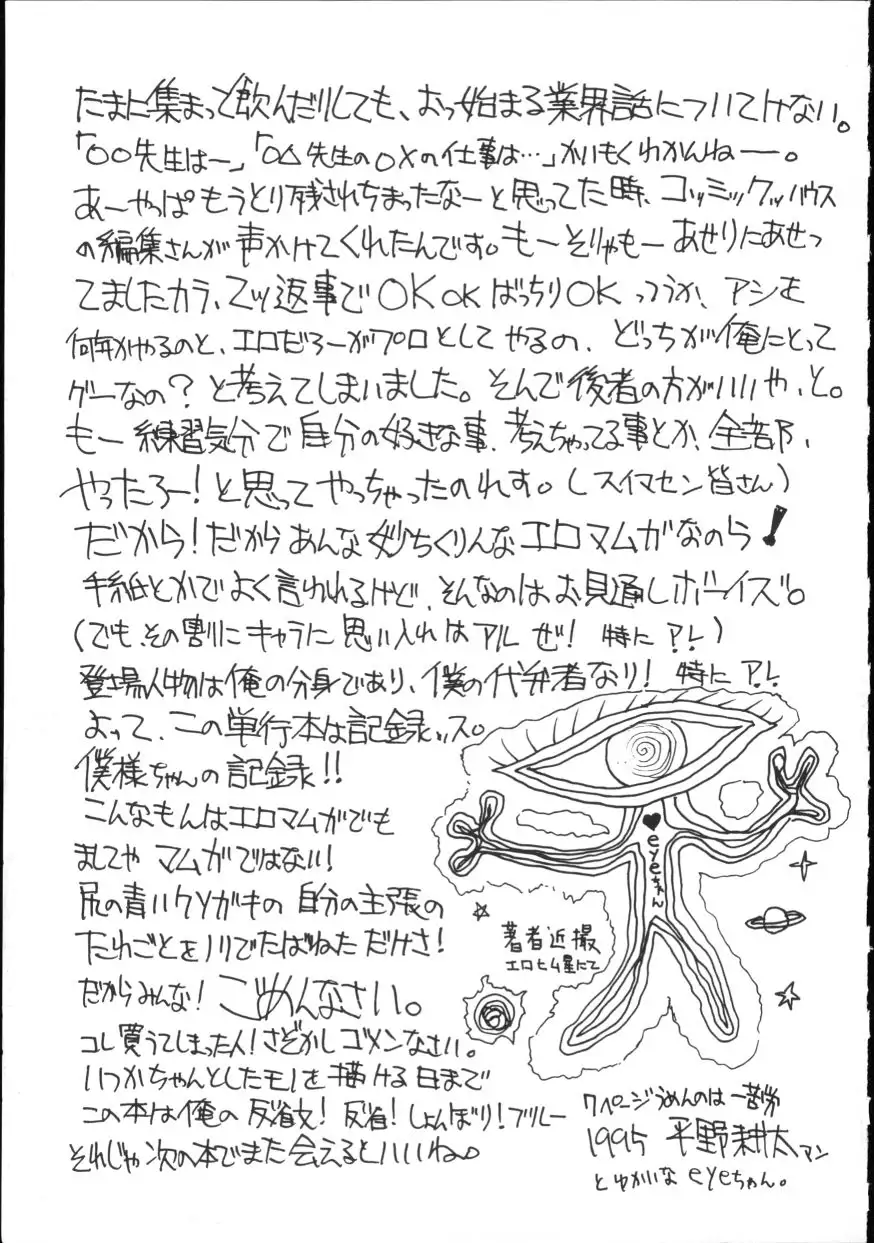 たまに集まって飲んだりしても、おっ始まる業界話についてけない。
「〇〇先生はー」「〇△先生の〇×の仕事は…」かいもくわかんねー。
あーやっぱもうとり残されちまったなーと思ってた時、コッミックッハウス
の編集さんが声かけてくれたんです。もーそりゃもーあせりにあせっ
てましたカラ、二ツ返事でOKOKばっちりOKっつうか、アシを
何年かやるのと、エロだろーがプロとしてやるの、どっちが俺にとって
ゲーなの?と考えてしまいました。そんで後者の方がいいや、と。
もー練習気分で自分の好きな事、考えちゃってる事とか、全部、
やったろー!と思ってやっちゃったのれす。(スイマセン皆さん)
だから!だからあんな妙ちくりんなエロマムガなのら!
手紙とかでよく言われるけど、そんなのはお見通しボーイズ。
(でも、その割にキャラに思い入れはアルぜ!特にアレ)
登場人物は俺の分身であり、僕の代弁者なり!特にアレ
よって、この単行本は記録ッス。
僕様ちゃんの記録!!
こんなもんはエロマムガでも
ましてやマムガではない!
尻の青いクソガキの自分の主張の
たわごとをノリでたばねただけさ!
だからみんな!ごめんなさい。
コレ買うてしまった人!さぞかしゴメンなさい。
いつかちゃんとしたモノを描ける日まで
この本は俺の反省文!反省!しょんぼり!ブルー
それじゃ次の本でまた会えるといいね。
♥eyeちゃん
著者近撮
エロヒム星にて
7ページうめんのは一苦労
1995 平野耕太、アン
とゆかいなeyeちゃん。